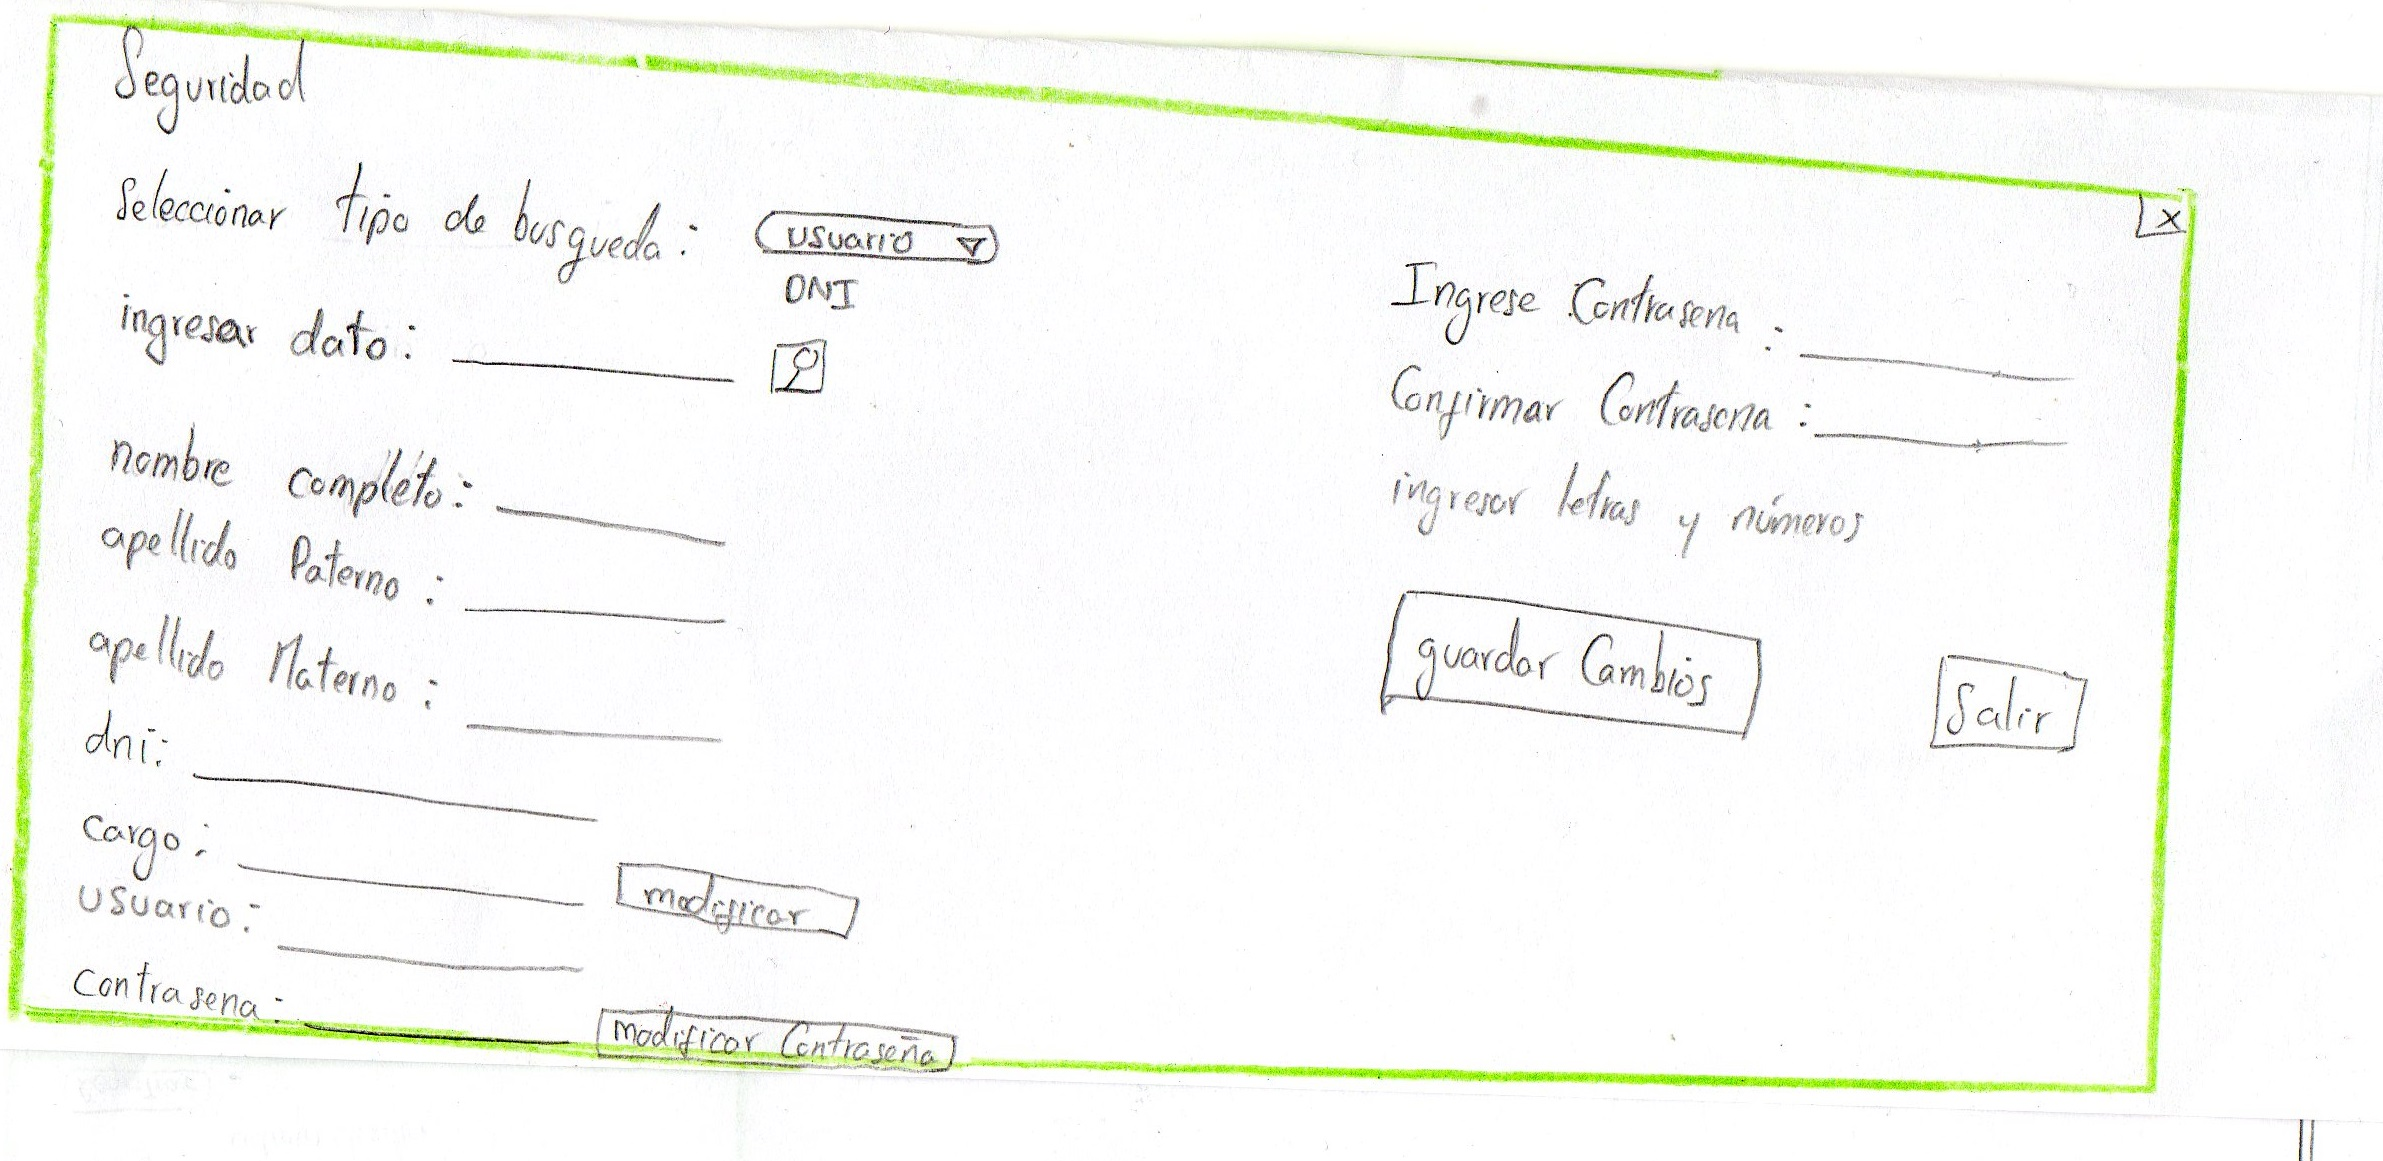 Seguridad
Seleccionar tipo de busqueda: usuario
DNI
ingresar dato:
nombre completo:
apellido Paterno:
apellido Materno:
dni:
cargo:
modificar
usuario:
contrasena:
modificar Contraseña
X
Ingrese Contrasena:
Confirmar Contrasena:
ingresar letras y números
guardar Cambios
Salir